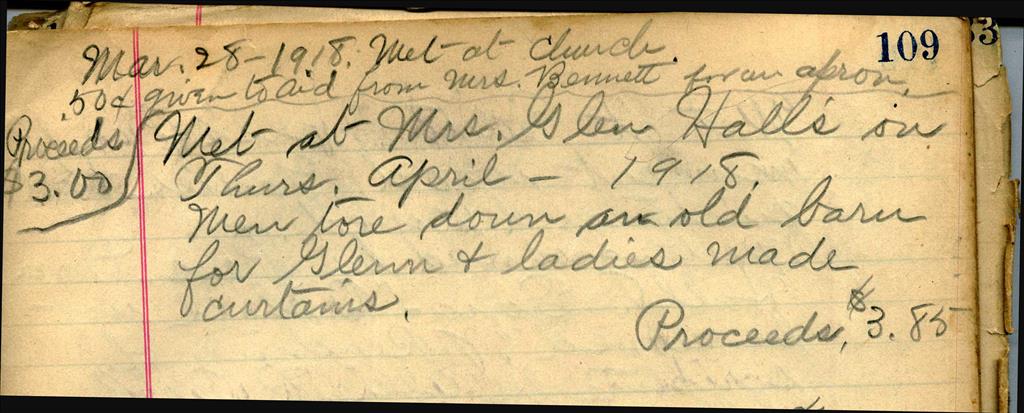 109
33
Mar. 28-1918. Met at church.
.50¢ given to aid from Mrs. Bennett for an apron.
Proceeds
$3.00
Met at Mrs. Glen Hall's on
Thurs. April - 1918.
Men tore down an old barn
for Glenn & ladies made
curtains.
Proceeds, $3.85